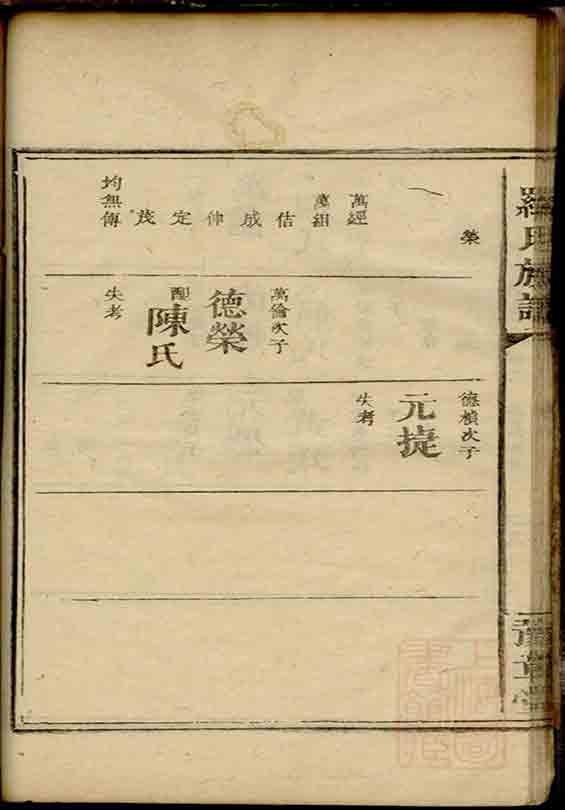 羅氏族譜
豫章堂
榮
萬經
萬組
估
成
仲
定
茂
均無傳
萬倫次子
德榮
配
陳氏
失考
德楨次子
元捷
失考